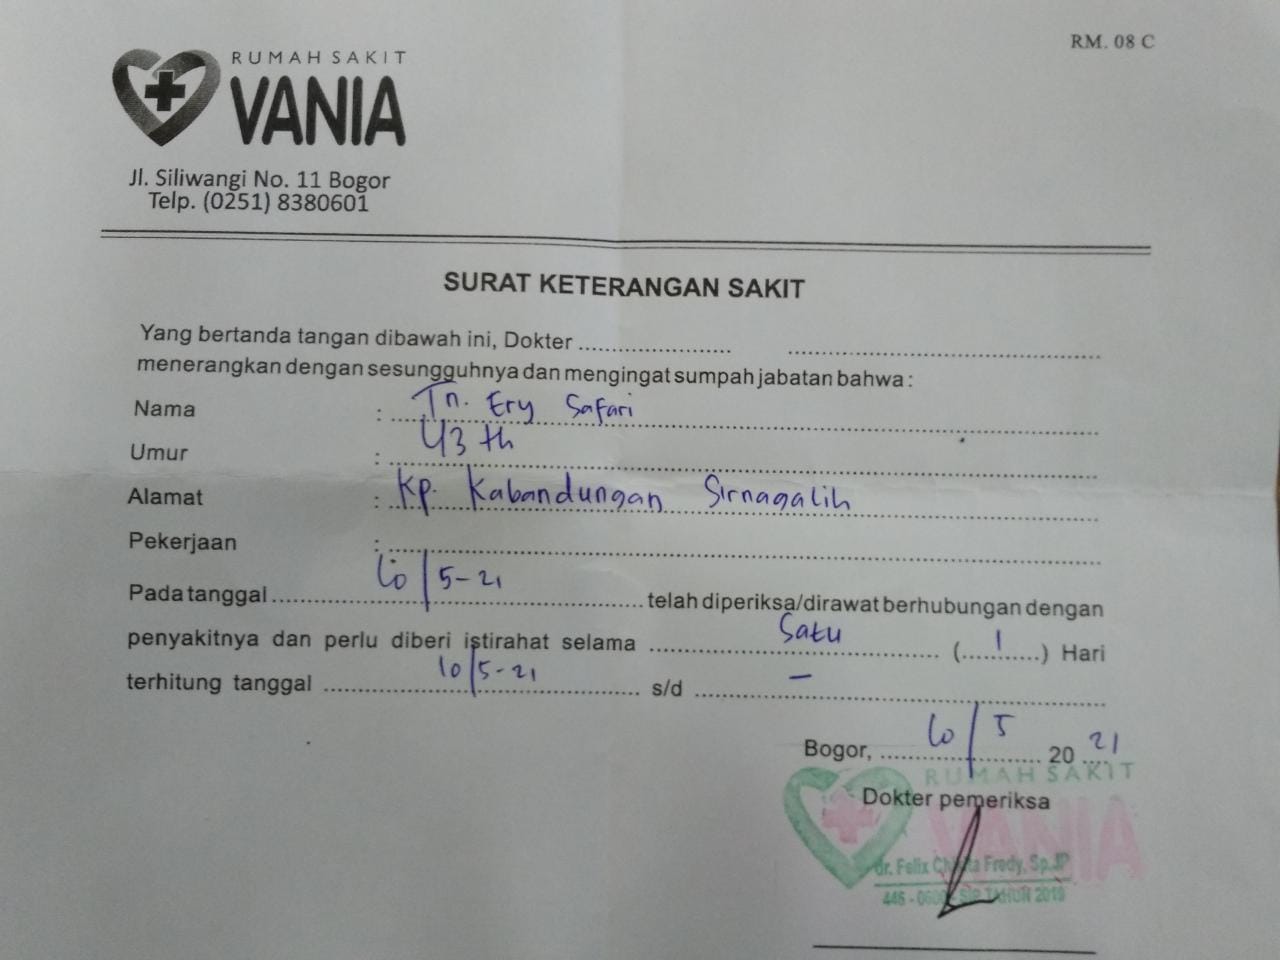 RM. 08 C
RUMAH SAKIT
VANIA
Jl. Siliwangi No. 11 Bogor
Telp. (0251) 8380601
SURAT KETERANGAN SAKIT
Yang bertanda tangan dibawah ini, Dokter ........................ ................................................
menerangkan dengan sesungguhnya dan mengingat sumpah jabatan bahwa :
Nama : Tn. Ery Safari
Umur : 43 th
Alamat : Kp. Kabandungan Sirnagalih
Pekerjaan : ................................................
Pada tanggal 10/5-21 telah diperiksa/dirawat berhubungan dengan
penyakitnya dan perlu diberi istirahat selama Satu (1) Hari
terhitung tanggal 10/5-21 s/d -
Bogor, 10/5 2021
RUMAH SAKIT
VANIA
Dokter pemeriksa
dr. Felix Fredy, Sp.JP
SIP TAHUN 2019